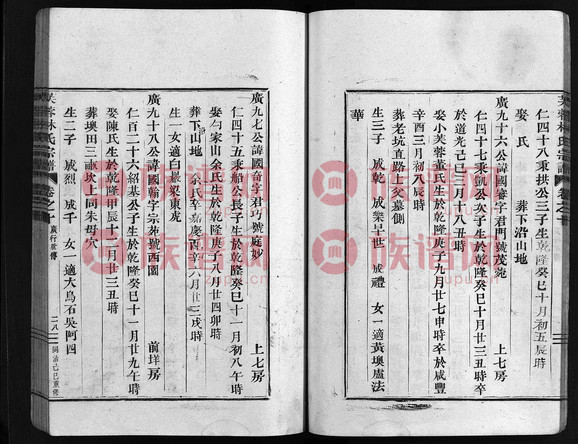 芙蓉林氏宗譜 卷之十
仁四十八秉拱公三子生乾隆癸巳十月初五辰時
娶 氏 葬下洛山地
廣九十六公諱國 字君門號茂苑 上七房
仁四十七秉凱公次子生於乾隆癸巳十月廿三丑時卒
於道光己巳三月十八丑時
娶小芙蓉董氏生於乾隆庚子九月廿七申時卒於咸豐
辛酉三月初八戌時
葬老坑直路上父墓側
生三子 成乾 成樂早世 成禮 女一適黃墺盧法
華
廣九七公諱國奇字君巧號庭妙 上七房
仁四十五秉船公長子生於乾隆癸巳十一月初八午時
娶 家山余氏生於乾隆庚子八月廿四卯時
葬下山地 余氏卒嘉慶丙辛六月廿三戌時
生一女適白景梁東虎
廣九十八公諱國翰字宗苑號西園 前垟房
仁百二十六紹基公子生於乾隆癸巳十一月廿九午時
娶陳氏生於乾隆甲辰十二月廿三丑時
葬墺田三畝坎上同朱母穴
生二子 成烈 成千 女一適大鳥石吳阿四
芙蓉林氏宗譜 卷之十 廣行世傳 二八 同治己巳重修
族谱网
zupu.cn